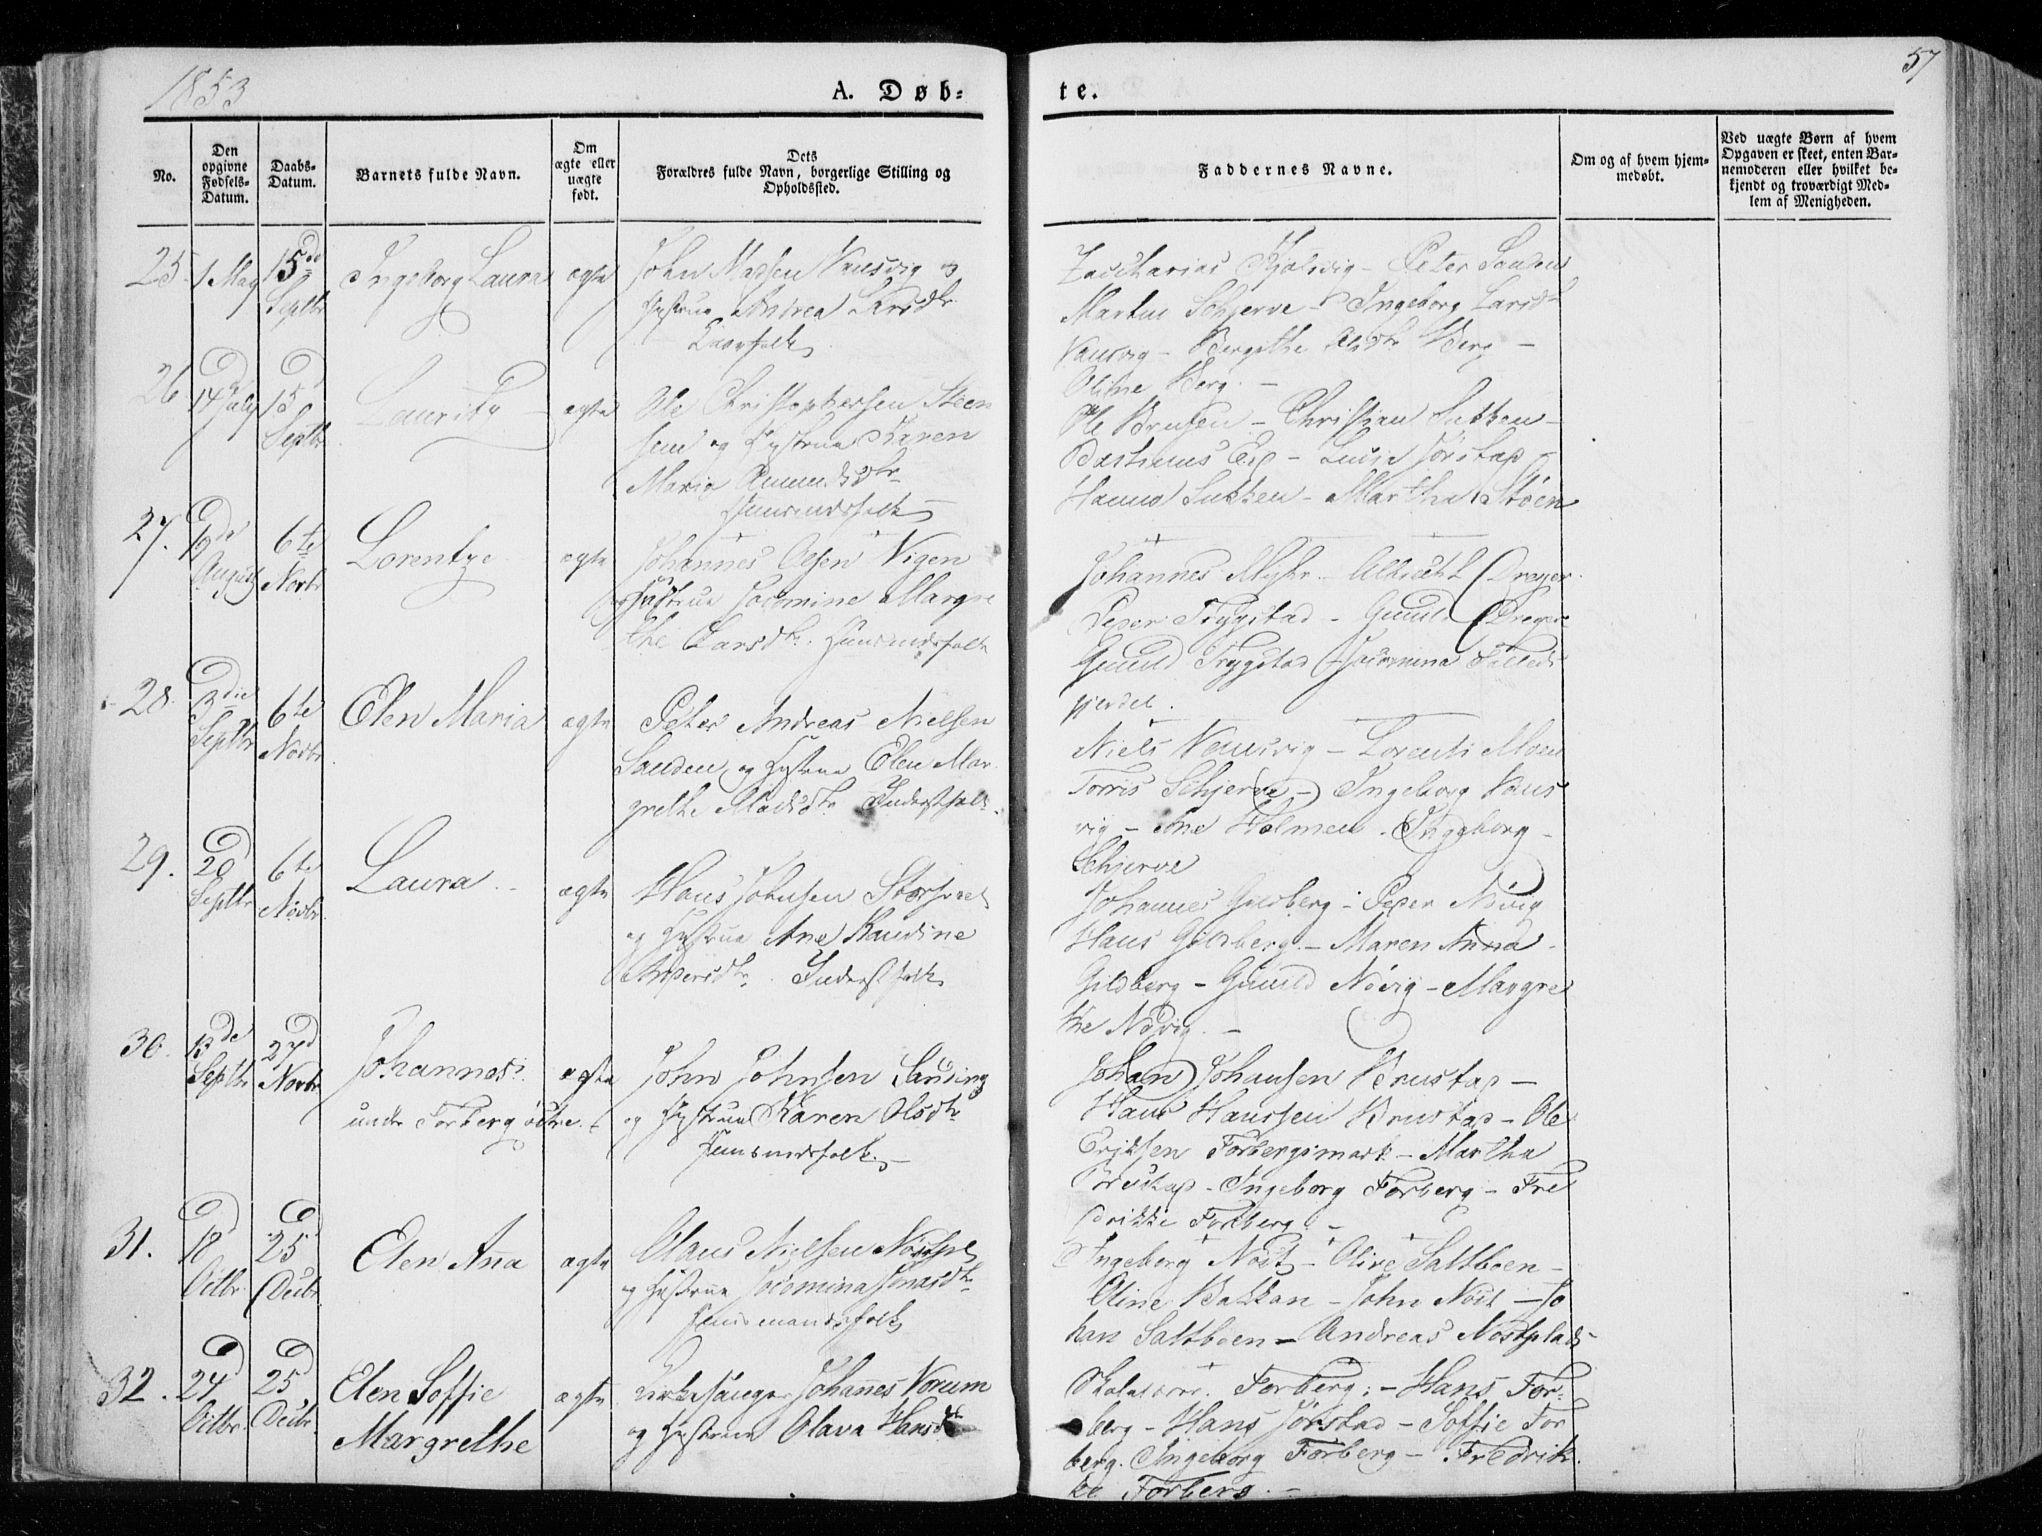 1853
A. Døb-
te.
57
No.
Den
opgivne
Fødsels-
Datum.
Daabs-
Datum.
Barnets fulde Navn.
Om
ægte eller
uægte
født.
Dets
Forældres fulde Navn, borgerlige Stilling og
Opholdssted.
Faddernes Navne.
Om og af hvem hjem-
medøbt.
Ved uægte Børn af hvem
Opgaven er skeet, enten Bar-
nemoderen eller hvilket be-
kjendt og troværdigt Med-
lem af Menigheden.
25
1 May
15de
Septbr
Ingeborg Laura
ægte
John Madsen Vansvig og
Hustrue Andrea Larsdtr
Zaccharias - Peter Sanden
Martin Schjerve - Ingeborg Larsdtr
Vansvig - Bergithe Olsdtr Berg -
Oline Berg. -
26
14 July
15
Septbr
Lauritz
ægte
Ole Christophersen Steen
sen og Hustrue Karen
Maria Amundsdtr
Huusmandsfolk
Ole - Christian Sukken -
- Lucia Jörstad -
Hanna Sukken - Martha Stöen
27.
August
6te
Novbr
Lorentze
ægte
Johannes Olsen Vigen
Hustrue Jacomine Margre
the Larsdtr. Huusmandsfolk
Johannes Myhr - Albricht Dreyer.
Peder Trygstad - Gunild Dreyer
Gunild Trygstad - Jacomina
28.
3die
Septbr
6te
Novbr
Elen Maria
ægte
Peter Andreas Nielsen
Sanden og Hustrue Elen Mar
grethe Madsdtr Inderstfolk.
Niels Vansvig - Lorents Moen
Torris Schjerve - Ingeborg Vans
vig - Ane Holmen - Ingeborg -
Schjerve
29.
20
Septbr
6te
Novbr
Laura
ægte
Hans Johnsen
og Hustrue Ane Randine
Inderstfolk
Johannes Gilberg - Peder Növig
Hans Gilberg - Maren Anna -
Gildberg - Gunild Növig - Margre
the Növig. -
30.
13de
Septbr
27d
Novbr
Johannes
under Forberg östre.
ægte
John Johnsen Sausing
og Hustrue Karen Olsdtr
Huusmandsfolk. -
Johan Johansen Brustap -
Hans Hanssen Brustap - Ole
Eriksen Forbergsmark - Martha
Brustap - Ingeborg Forberg - Fre
drikke Forberg. -
31.
18
Octbr
25
Decbr
Elen Aña
ægte
Olaus Nielsen
og Hustrue Jacomina Jonasdtr
Huusmandsfolk
Ingeborg Nöst - Olive Saltboen -
Oline Bakkan - John Nöst - Jo
han Saltboen - Andreas Nöstplads -
32.
24
Octbr
25
Decbr
Elen Soffie
Margrethe
ægte
Kirkesanger Johañes Vorum
og Hustrue Olava Hansdtr
Forberg. - Hans For-
berg - Hans Jörstad - Soffie For
berg. Ingeborg Forberg - Fredrik
ke Forberg. -